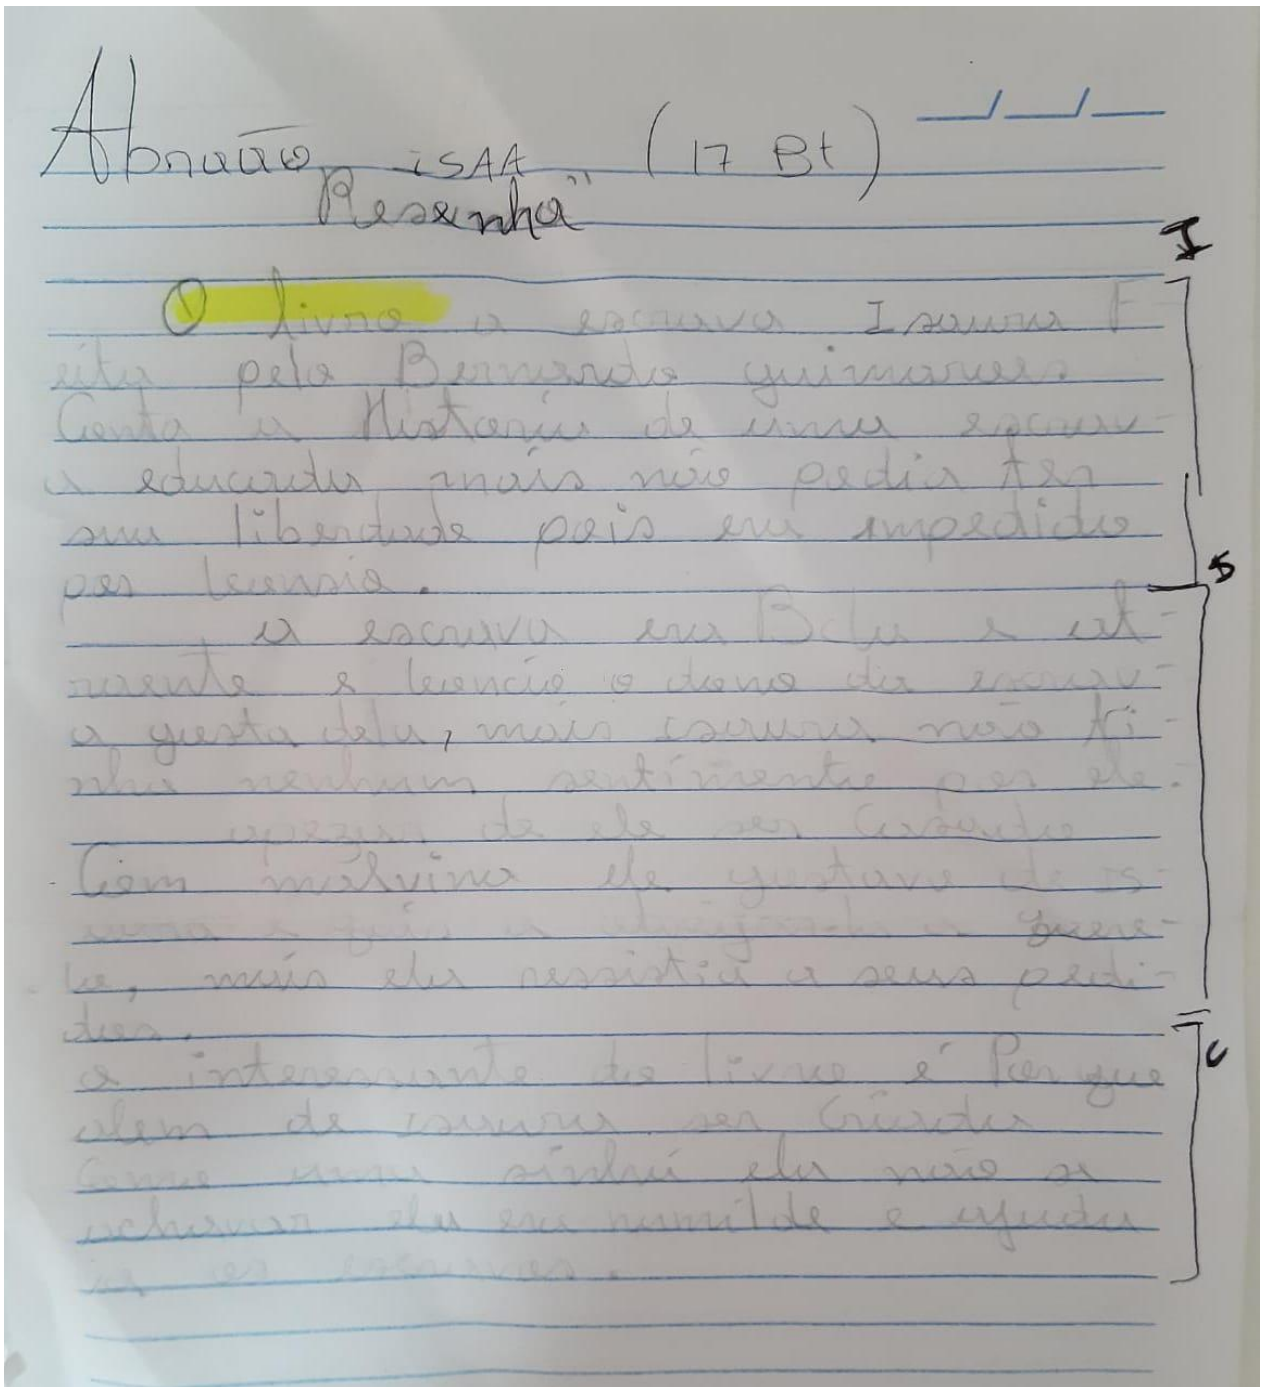 Abraão isAA (17 Bt)
Resenha"
I
O livro a escrava Isaura F
eita pelo Bernardo guimaraes.
Conta a Historia de uma escrav-
a educada mais não podia ter
sua liberdade pois era impedida
por leonsio.
D
a escrava era Bela e at-
raente e leoncio o dono da escrav-
a gosta dela, mais isaura não ti-
nha nenhum sentimento por ele.
apezar de ele ser Casado
Com malvina ele gostava de is-
aura e
la, mais ela ressistia a seus pedi-
dos.
C
o interessante do livro é Porque
alem de isaura ser Criada
Como uma sinhá ela não se
achavar ela era humilde e ajuda
os escravos.